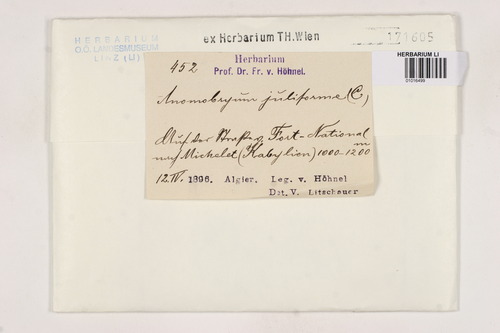 HERBARIUM
O.Ö. LANDESMUSEUM
LINZ (LI)
ex Herbarium TH.Wien
171605
HERBARIUM LI
452
Herbarium
Prof. Dr. Fr. v. Höhnel.
Anomobryum juliforme (C)
Auf der Straße v. Fort-National
nach Michelet (Kabylien) 1000-1200 m
12. IV. 1896. Algier. Leg. v. Höhnel
Det. V. Litschauer